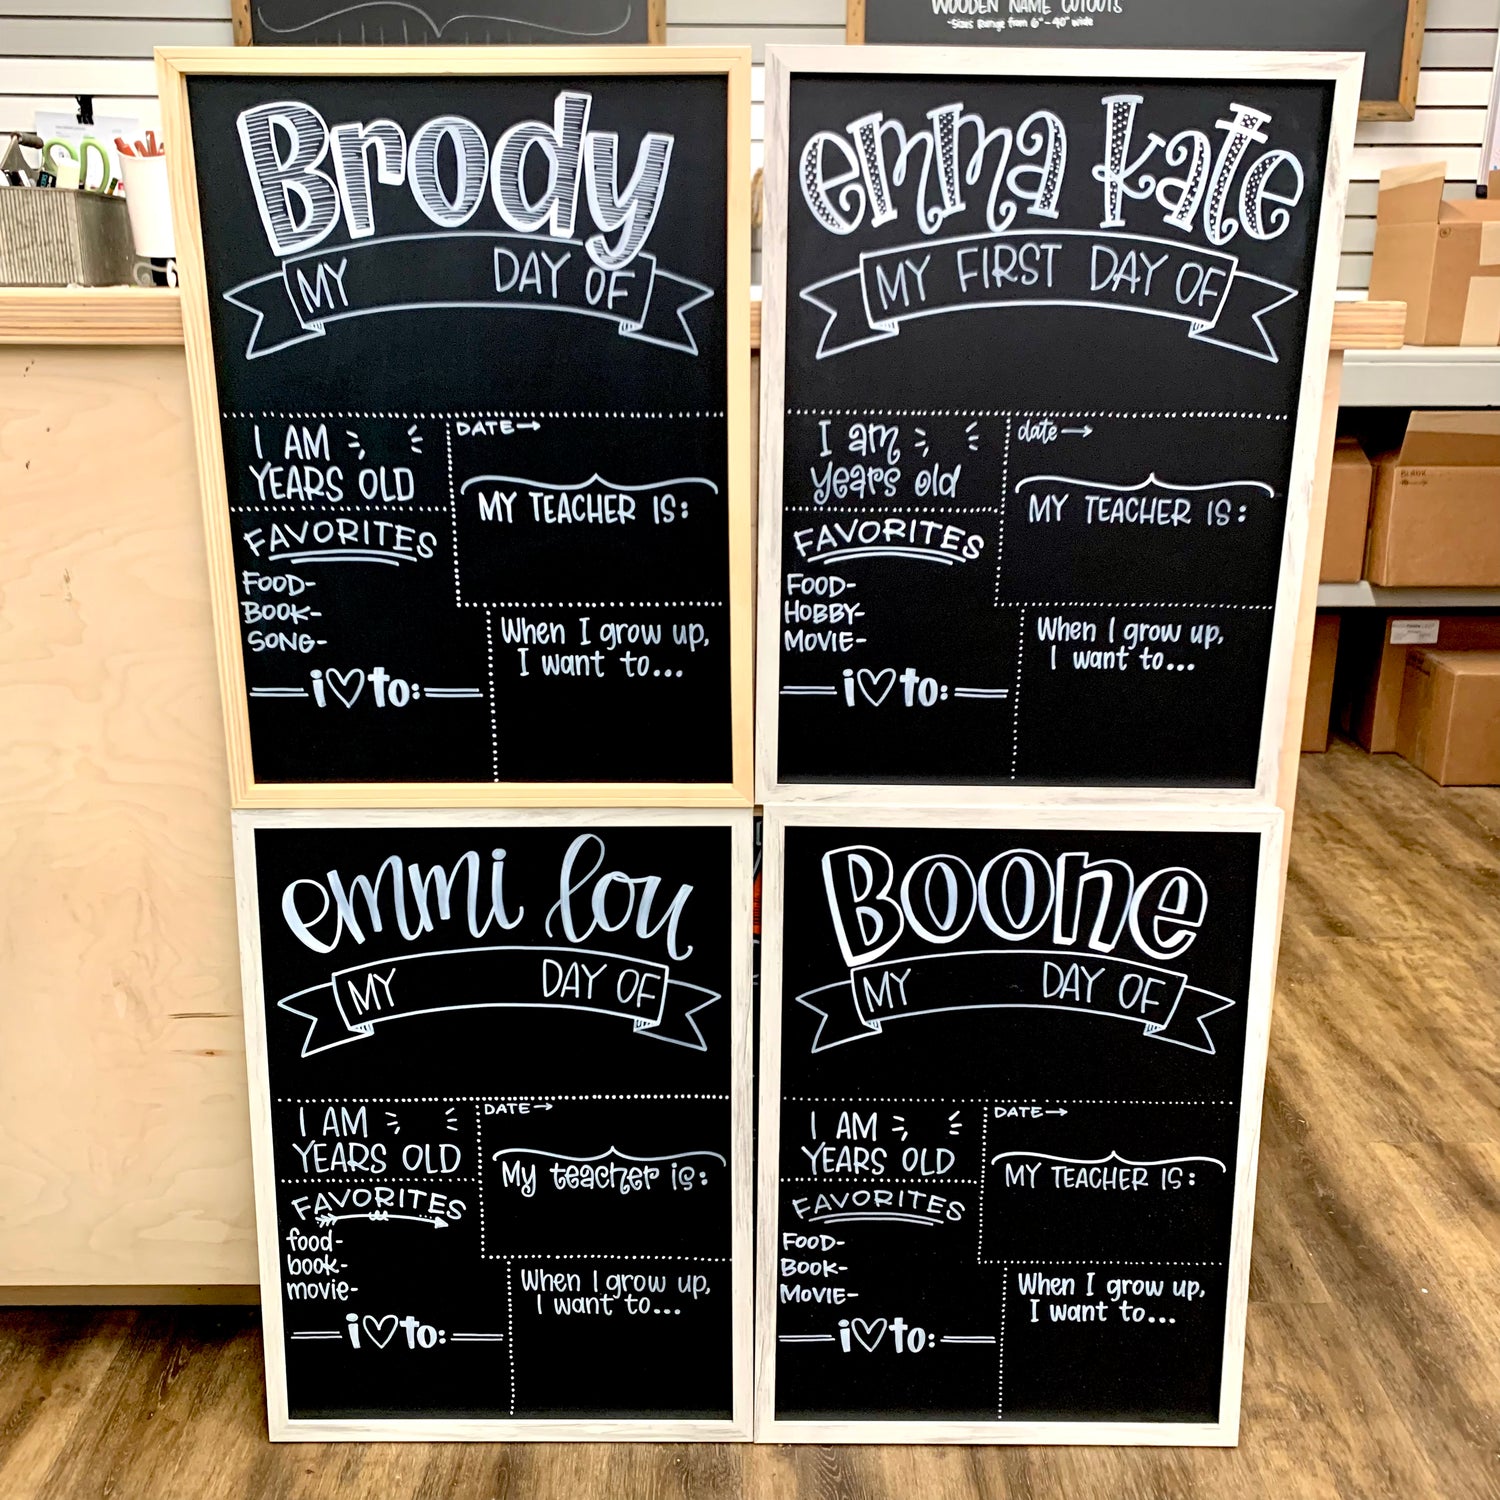 WOODEN NAME CUTOUTS
*Sizes Range from 6"-40" wide
Brody
MY DAY OF
I AM
YEARS OLD
DATE→
MY TEACHER IS:
FAVORITES
FOOD-
BOOK-
SONG-
i♡to:
When I grow up,
I want to...
emma kate
MY FIRST DAY OF
I am
years old
date→
MY TEACHER IS:
FAVORITES
FOOD-
HOBBY-
MOVIE-
i♡to:
When I grow up,
I want to...
emmi lou
MY DAY OF
I AM
YEARS OLD
DATE→
My teacher is:
FAVORITES
food-
book-
movie-
i♡to:
When I grow up,
I want to...
Boone
MY DAY OF
I AM
YEARS OLD
DATE→
MY TEACHER IS:
FAVORITES
FOOD-
BOOK-
MOVIE-
i♡to:
When I grow up,
I want to...